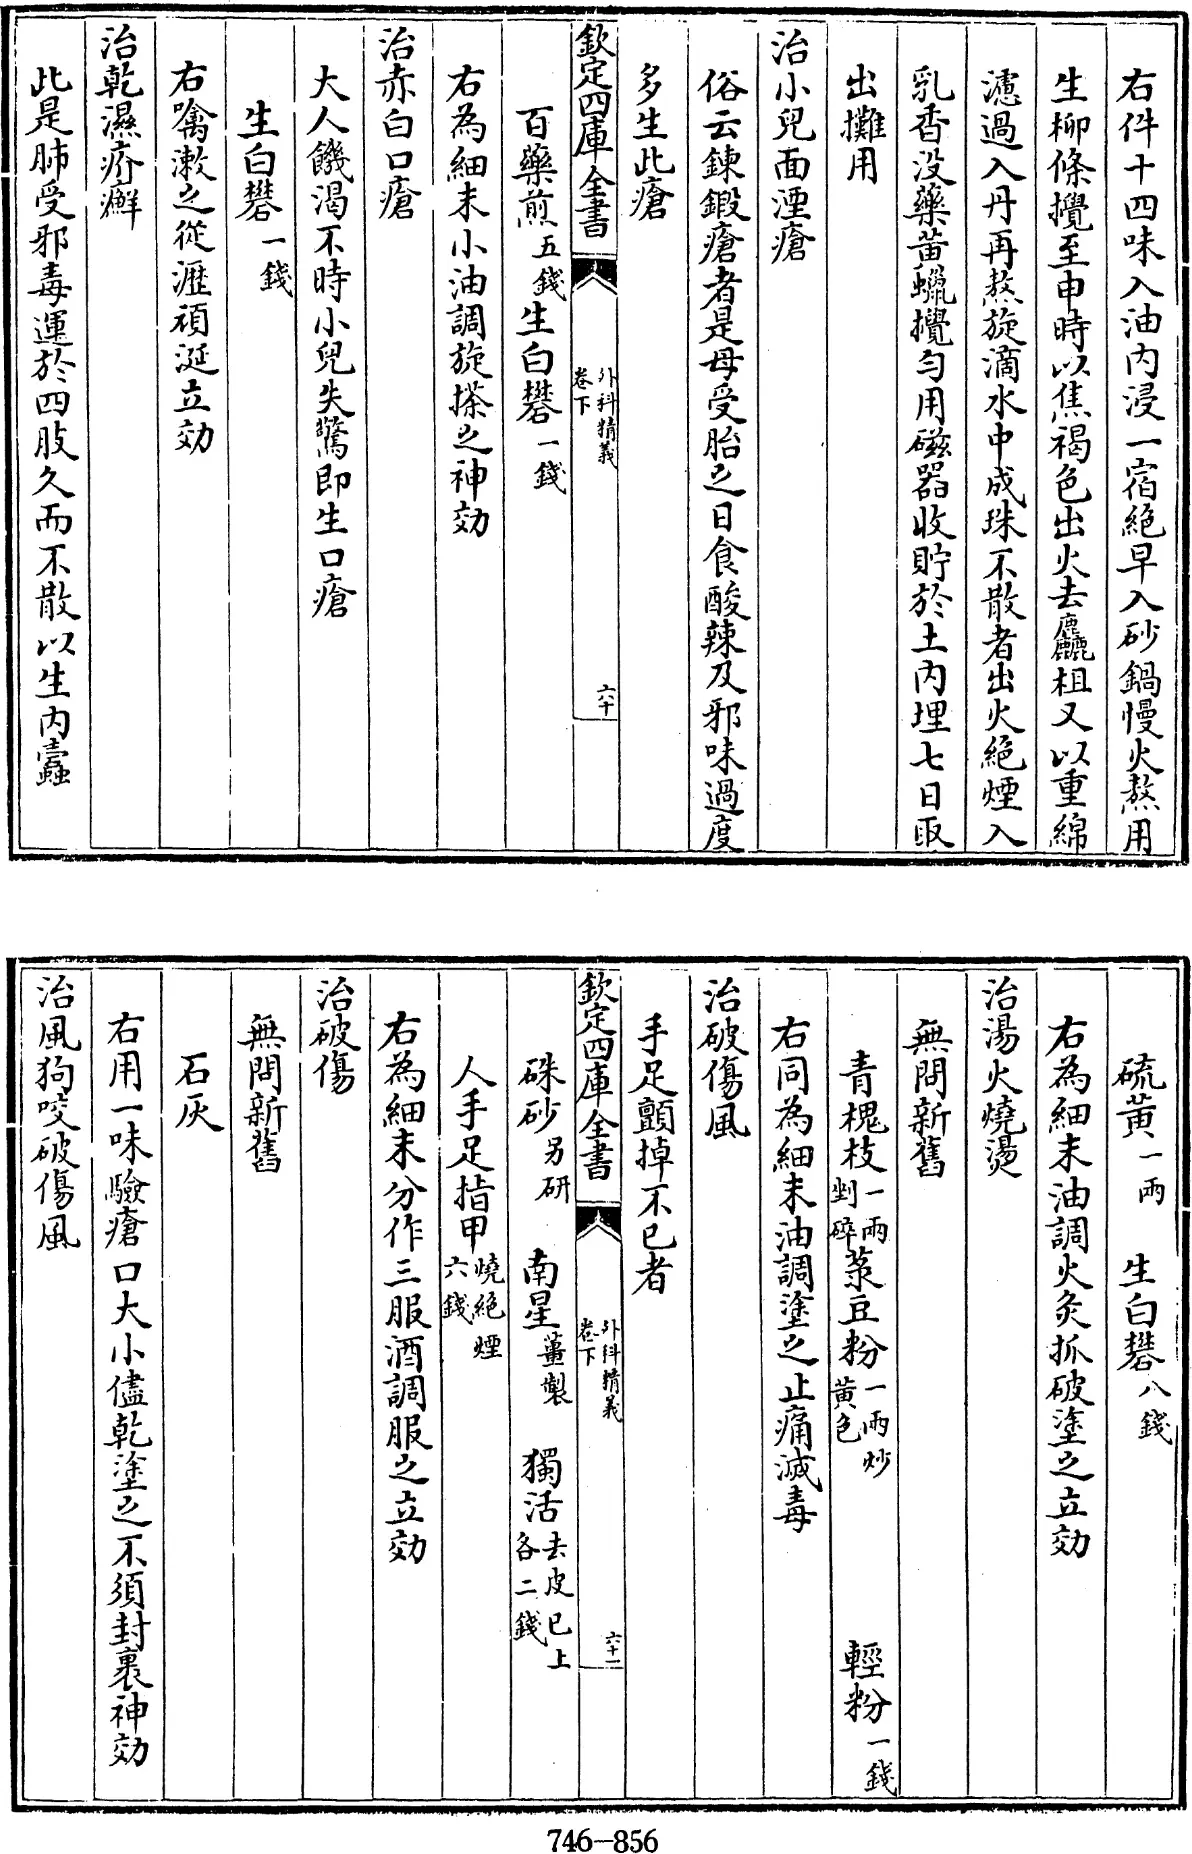 右件十四味入油内浸一宿絶早入砂鍋慢火熬用
生柳條攪至申時以焦褐色出火去麤柤又以重綿
濾過入丹再熬旋滴水中成珠不散者出火絶煙入
乳香没藥黄蠟攪匀用磁器收貯於土内埋七日取
出攤用
治小兒面湮瘡
俗云鍊鍜瘡者是母受胎之日食酸辣及邪味過度
多生此瘡
欽定四庫全書 外科精義 卷下 六十
百藥煎五錢生白礬一錢
右為細末小油調旋搽之神効
治赤白口瘡
大人饑渴不時小兒失驚即生口瘡
生白礬一錢
右噙漱之從涎頑涎立効
治乾濕疥癬
此是肺受邪毒運於四肢久而不散以生内蠧
硫黄一兩 生白礬八錢
右為細末油調火炙抓破塗之立効
治湯火燒燙
無問新舊
青槐枝一兩剉碎菉豆粉一兩炒黄色 輕粉一錢
右同為細末油調塗之止痛滅毒
治破傷風
手足顫掉不已者
欽定四庫全書 外科精義 卷下 六十一
硃砂另研 南星薑製 獨活去皮已上各二錢
人手足指甲燒絶煙六錢
右為細末分作三服酒調服之立効
治破傷
無問新舊
石灰
右用一味驗瘡口大小儘乾塗之不須封裹神効
治風狗咬破傷風
746-856